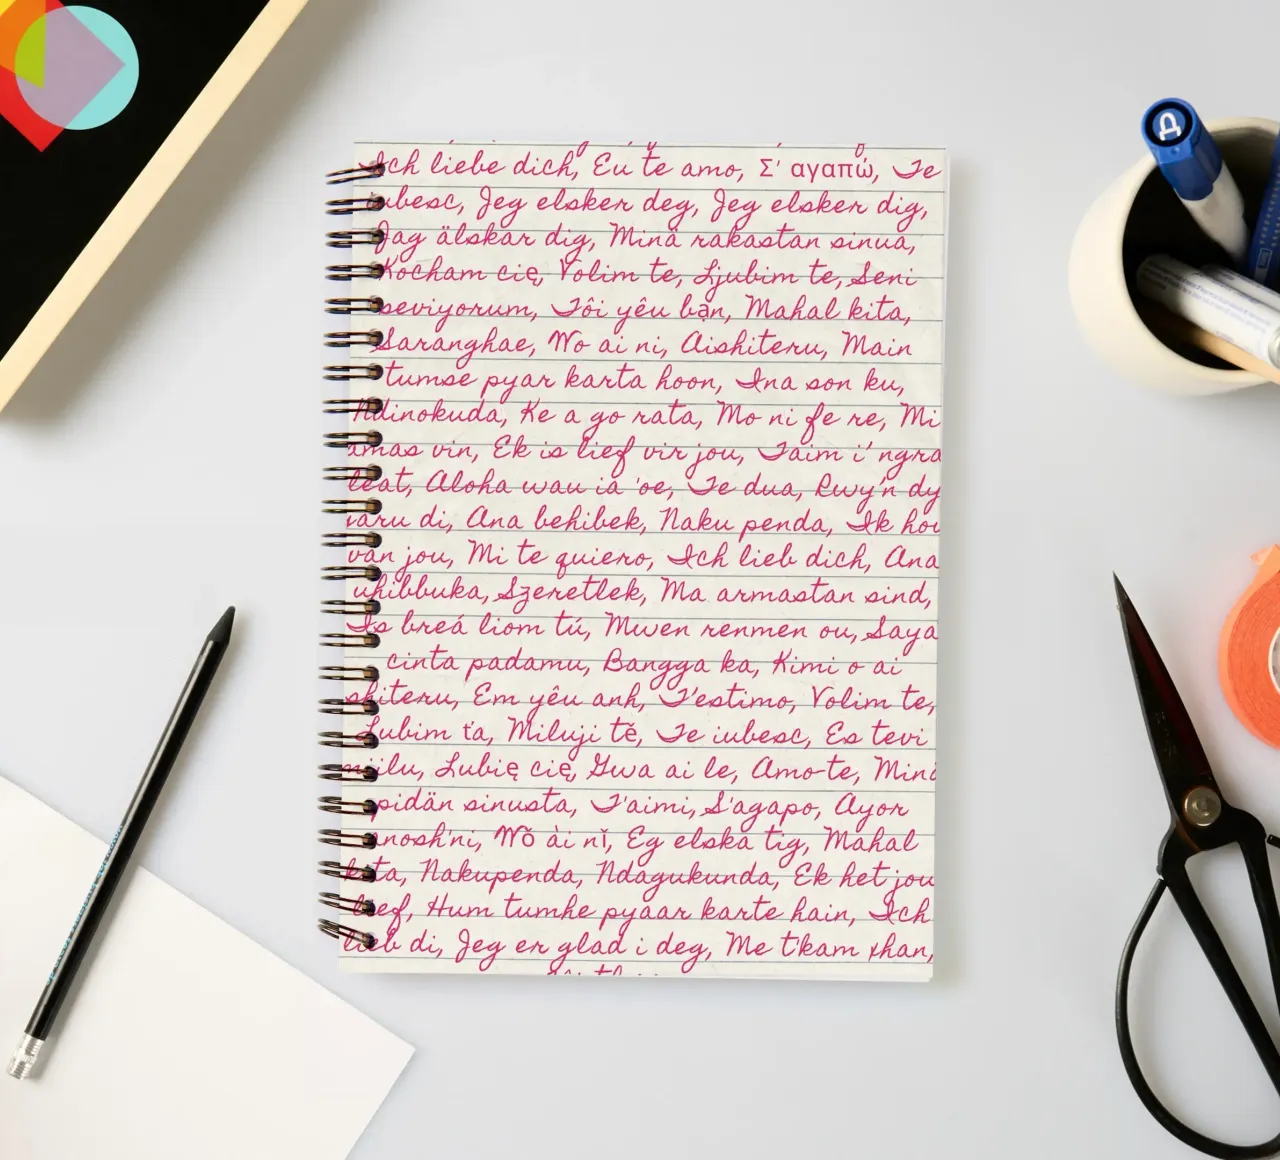 Ich liebe dich, Eu te amo, Σ' αγαπώ, Te
iubesc, Jeg elsker deg, Jeg elsker dig,
Jag älskar dig, Minä rakastan sinua,
Kocham cię, Volim te, Ljubim te, Seni
seviyorum, Tôi yêu bạn, Mahal kita,
Saranghae, Wo ai ni, Aishiteru, Main
tumse pyar karta hoon, Ina son ku,
Ndinokuda, Ke a go rata, Mo ni fe re, Mi
amas vin, Ek is lief vir jou, Taim i' ngra
leat, Aloha wau ia 'oe, Te dua, Rwy'n dy
garu di, Ana behibek, Naku penda, Ik hou
van jou, Mi te quiero, Ich lieb dich, Ana
uhibbuka, Szeretlek, Ma armastan sind,
Is breá liom tú, Mwen renmen ou, Saya
cinta padamu, Bangga ka, Kimi o ai
shiteru, Em yêu anh, T'estimo, Volim te,
Lubim ťa, Miluji tě, Te iubesc, Es tevi
miilu, Lubię cię, Gwa ai le, Amo-te, Minä
pidän sinusta, T'aimi, S'agapo, Ayor
anosh'ni, Wǒ ài nǐ, Eg elska tig, Mahal
kita, Nakupenda, Ndagukunda, Ek het jou
lief, Hum tumhe pyaar karte hain, Ich
lieb di, Jeg er glad i deg, Me t'kam xhan,